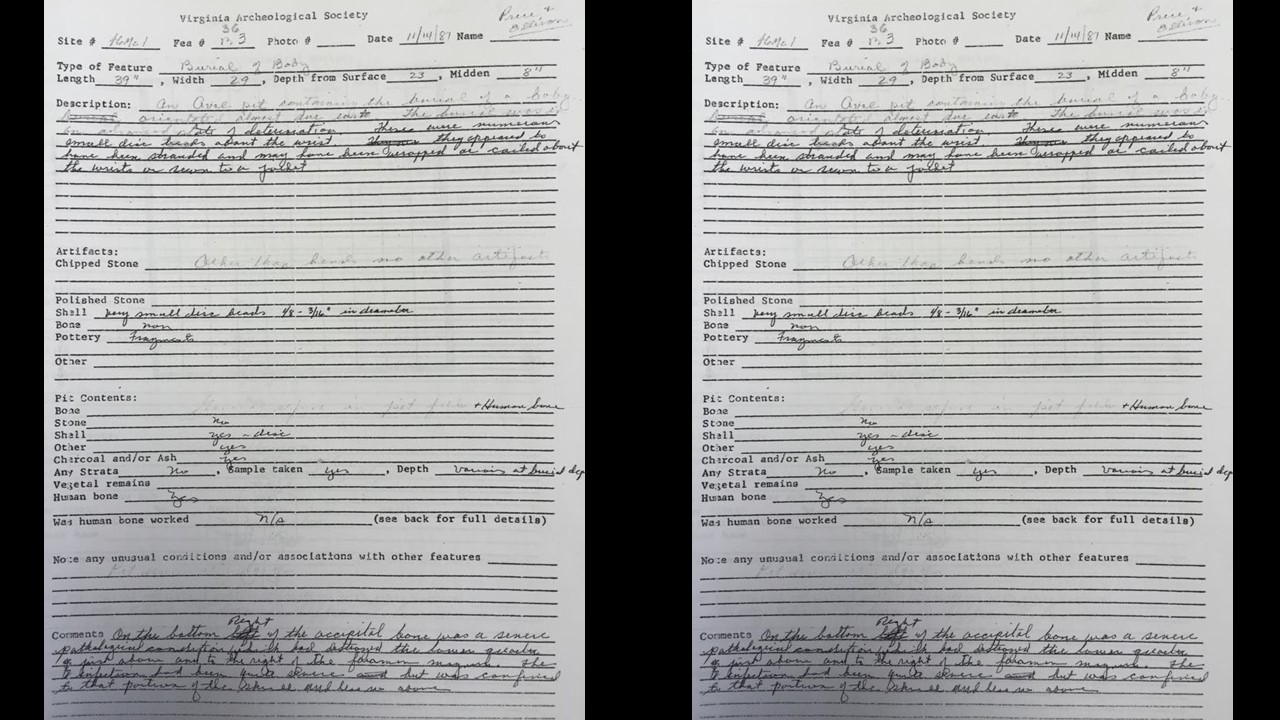 Virginia Archeological Society
Price &
36
Site # Fea # B.3 Photo # Date 11/14/87 Name
Type of Feature Burial of Baby
Length 39" , Width 29 , Depth from Surface 23 , Midden 8"
Description: An Oval pit containing the burial of a baby
orientated almost due east The burial was in
an advanced state of deterioration. There were numerous
small disc beads about the wrist. they appeared to
have been stranded and may have been wrapped or coiled about
the wrists or sewn to a jacket
Artifacts:
Chipped Stone Other than beads no other artifacts
Polished Stone
Shell very small disc beads 1/8 - 3/16" in diameter
Bone non
Pottery Fragments
Other
Pit Contents:
Bone in pit + Human bone
Stone no
Shell yes - disc
Other yes
Charcoal and/or Ash yes
Any Strata No , Sample taken yes , Depth various at burial dep
Vegetal remains
Human bone Yes
Was human bone worked n/a (see back for full details)
Note any unusual conditions and/or associations with other features
Right
Comments On the bottom of the accipital bone was a severe
pathological condition which had destroyed the lower
just above and to the right of the foramen magnum. The
infection had been quite severe and but was confined
to that portion of the
Virginia Archeological Society
Price &
36
Site # Fea # B.3 Photo # Date 11/14/87 Name
Type of Feature Burial of Baby
Length 39" , Width 29 , Depth from Surface 23 , Midden 8"
Description: An Oval pit containing the burial of a baby
orientated almost due east The burial was in
an advanced state of deterioration. There were numerous
small disc beads about the wrist. they appeared to
have been stranded and may have been wrapped or coiled about
the wrists or sewn to a jacket
Artifacts:
Chipped Stone Other than beads no other artifacts
Polished Stone
Shell very small disc beads 1/8 - 3/16" in diameter
Bone non
Pottery Fragments
Other
Pit Contents:
Bone in pit + Human bone
Stone no
Shell yes - disc
Other yes
Charcoal and/or Ash yes
Any Strata No , Sample taken yes , Depth various at burial dep
Vegetal remains
Human bone Yes
Was human bone worked n/a (see back for full details)
Note any unusual conditions and/or associations with other features
Right
Comments On the bottom of the accipital bone was a severe
pathological condition which had destroyed the lower
just above and to the right of the foramen magnum. The
infection had been quite severe and but was confined
to that portion of the